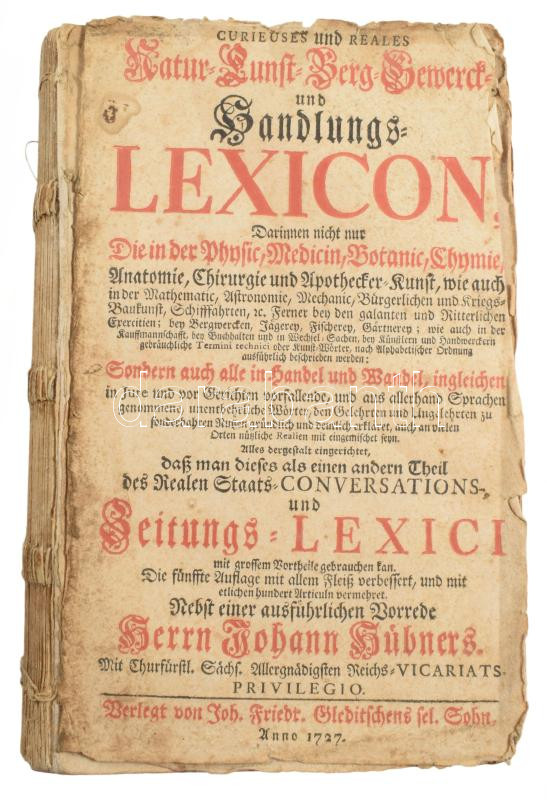 CURIEUSES und REALES
Natur-Kunst-Berg-Gewerck-
und
Handlungs-
LEXICON,
Darinnen nicht nur
Die in der Physic, Medicin, Botanic, Chymie,
Anatomie, Chirurgie und Apothecker-Kunst, wie auch
in der Mathematic, Astronomie, Mechanic, Bürgerlichen und Kriegs-
Baukunst, Schifffahrten, ꝛc. Ferner bey den galanten und Ritterlichen
Exercitien; bey Bergwercken, Jägerey, Fischerey, Gärtnerey; wie auch in der
Kauffmannschafft, bey Buchhalten und in Wechsel-Sachen, bey Künstlern und Handwerckern
gebräuchliche Termini technici oder Kunst-Wörter, nach Alphabetischer Ordnung
ausführlich beschrieben werden;
Sondern auch alle in Handel und Wandel, ingleichen
in Jure und vor Gerichten vorfallende, und aus allerhand Sprachen
genommene, unentbehrliche Wörter, den Gelehrten und Ungelehrten zu
sonderbahren Nutzen gründlich und deutlich erkläret, auch an vielen
Orten nützliche Realien mit eingemischet seyn.
Alles dergestalt eingerichtet,
daß man dieses als einen andern Theil
des Realen Staats-CONVERSATIONS-
und
Zeitungs-LEXICI
mit grossem Vortheile gebrauchen kan.
Die fünffte Auflage mit allem Fleiß verbessert, und mit
etlichen hundert Articuln vermehret.
Nebst einer ausführlichen Vorrede
Herrn Johann Hübners.
Mit Churfürstl. Sächs. Allergnädigsten Reichs-VICARIATS-
PRIVILEGIO.
Verlegt von Joh. Friedr. Gleditschens sel. Sohn,
Anno 1727.